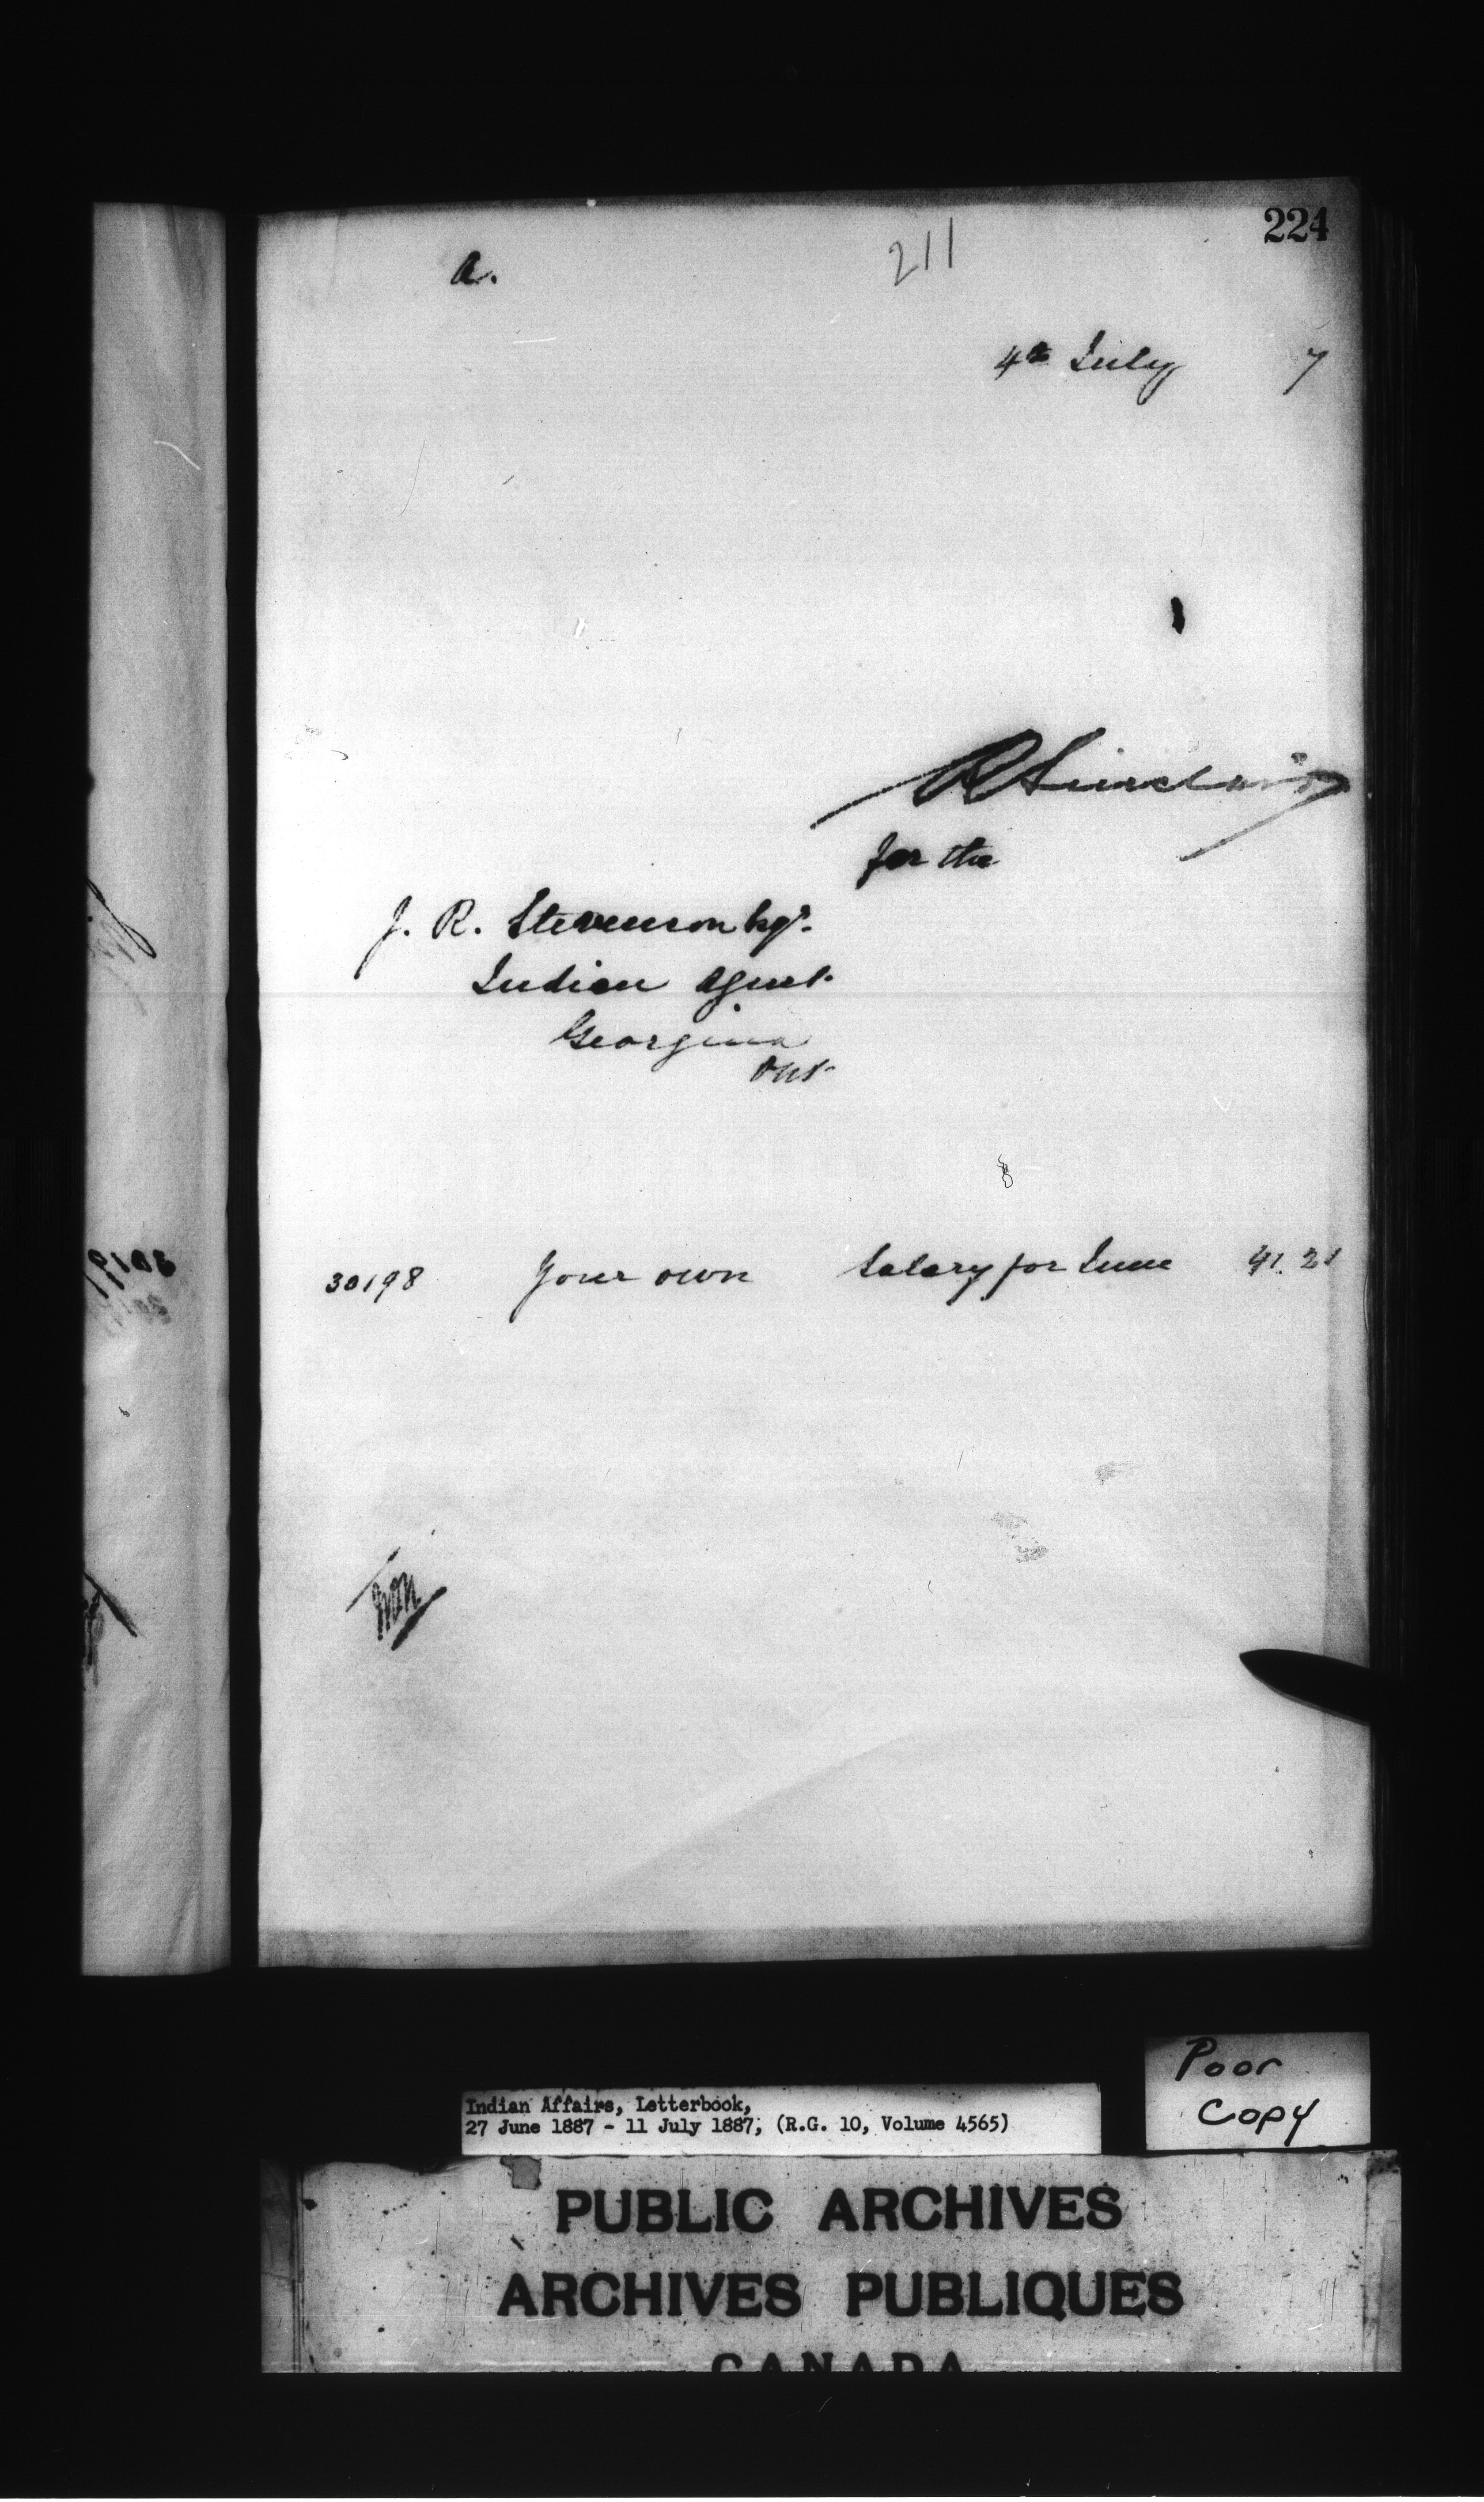 224
a.
211
4th July 7
R Sinclair
for the
J. R. Stevenson Esqr.
Indian Agent
Georgina
Ont
30198 Your own Salary for June 41.21
Indian Affairs, Letterbook,
27 June 1887 - 11 July 1887, (R.G. 10, Volume 4565)
Poor
Copy
PUBLIC ARCHIVES
ARCHIVES PUBLIQUES
CANADA